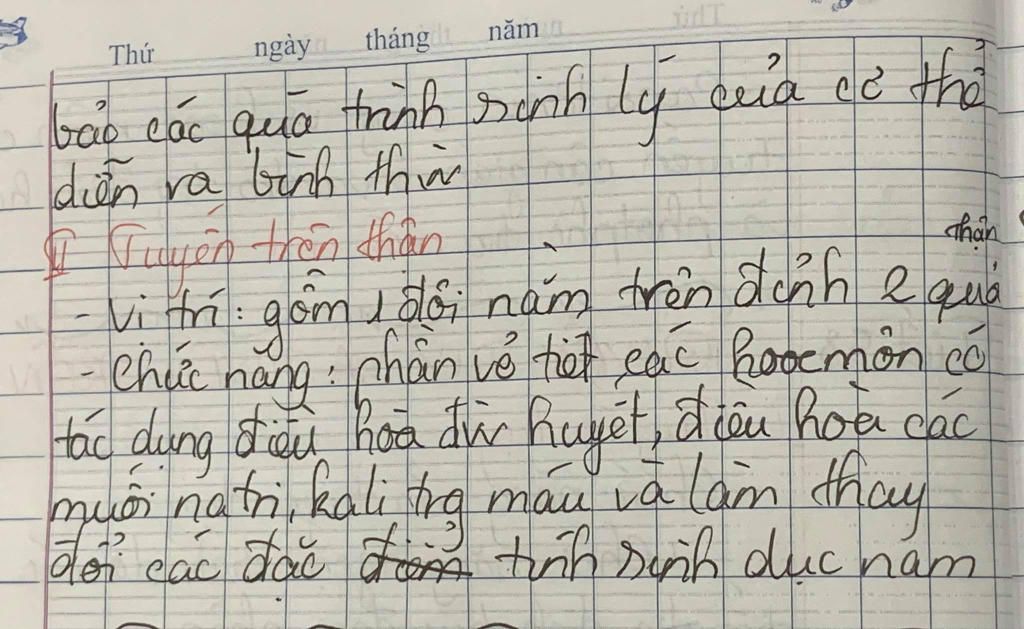 Thứ ngày tháng năm
bảo các quá trình sinh lý của cơ thể
diễn ra bình thườ
II Tuyến trên thận
- Vị trí: gồm 1 đôi nằm trên đỉnh 2 quả thận
- Chức năng: phần vỏ tiết các hoocmôn có
tác dụng điều hoà đườ huyết, điều hoà các
muối natri, kali trg máu và làm thay
đổi các đặc điểm tính sinh dục nam